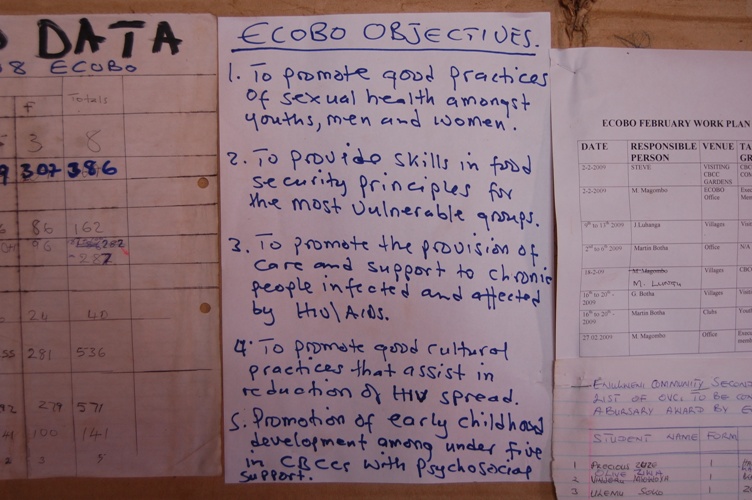 DATA
8 ECOBO
F Totals
3 8
307 386
86 162
287
281 536
279 571
100 141
ECOBO OBJECTIVES.
1. To promote good practices
of sexual health amongst
youths, men and women.
2. To provide skills in food
security principles for
the most vulnerable groups.
3. To promote the provision of
care and support to chronic
people infected and affected
by HIV\AIDS.
4. To promote good cultural
practices that assist in
reduction of HIV spread.
5. Promotion of early childhood
development among under five
in CBCCs with psychosocial
support.
ECOBO FEBRUARY WORK PLAN
DATE RESPONSIBLE VENUE TA
PERSON GR
2-2-2009 STEVE VISITING CBC
CBCC COM
GARDENS
2-2-2009 M. Magombo ECOBO
Office
9th to 13th 2009 J.Luhanga Villages
2nd to 6th 2009 Martin Botha Office N/A
18-2-09 M. Magombo Villages CBO
16th to 20th - G. Botha Villages
2009
16th to 20th - Martin Botha Clubs Yout
2009
27.02.2009 M. Magombo Office
COMMUNITY SECOND
LIST OF OVCs TO BE CON
A BURSARY AWARD BY E
STUDENT NAME FORM
1 PRECIOUS
2
3